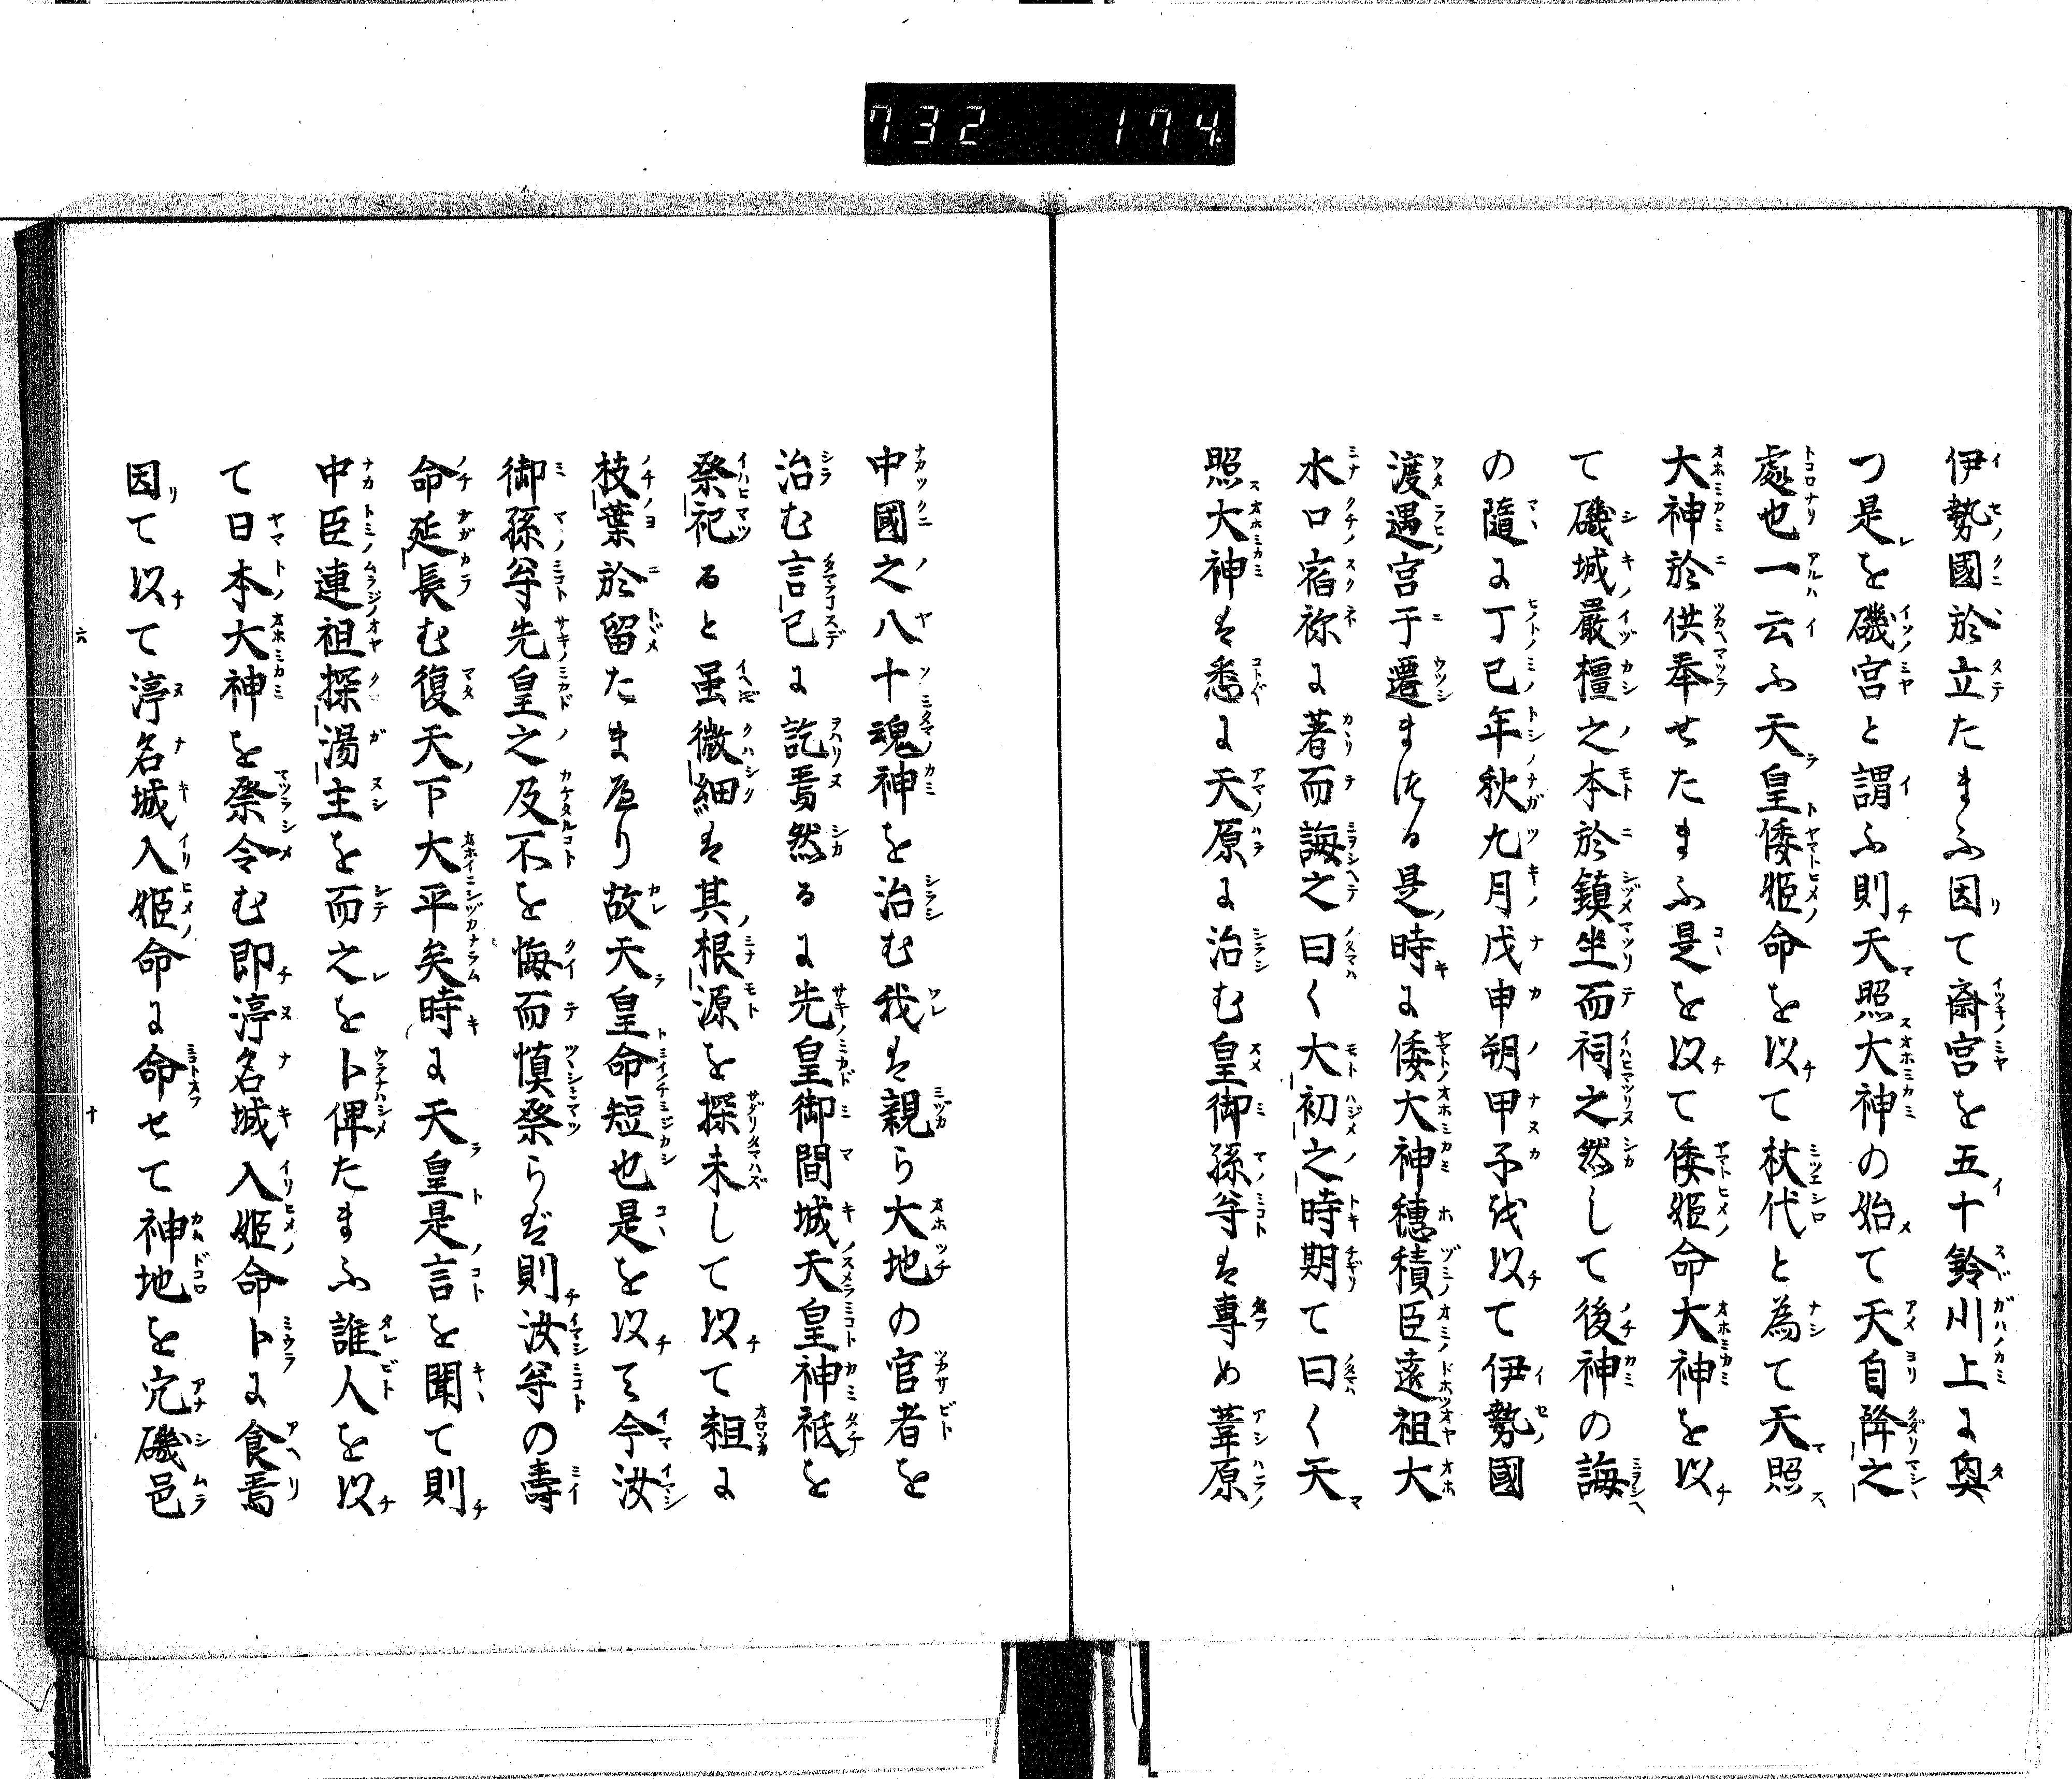 732 174
伊勢國於立たまふ因て斎宮を五十鈴川上よ奥
つ是を磯宮と謂ふ則天照大神の始て天自降之
處也一云ふ天皇倭姫命を以て杖代と為て天照
大神於供奉せたまふ是を以て倭姫命大神を以
て磯城嚴橿之本於鎮坐而祠之然して後神の誨
の隨よ丁巳年秋九月戊申朔甲子を以て伊勢國
渡遇宮于遷まつる是時よ倭大神穗積臣遠祖大
水口宿祢よ著而誨之曰く大初之時期て曰く天
照大神は悉よ天原よ治む皇御孫等は専め葦原
中國之八十魂神を治む我は親ら大地の官者を
治む言已よ訖焉然るよ先皇御間城天皇神祇を
祭祀ると虽微細は其根源を探未して以て粗よ
枝葉於留たまへり故天皇命短也是を以て今汝
御孫等先皇之及不を悔而慎祭らば則汝等の壽
命延長む復天下大平矣時よ天皇是言を聞て則
中臣連祖探湯主を而之を卜俾たまふ誰人を以
て日本大神を祭令む即渟名城入姫命卜よ食焉
因て以て渟名城入姫命よ命せて神地を穴磯邑
六
十